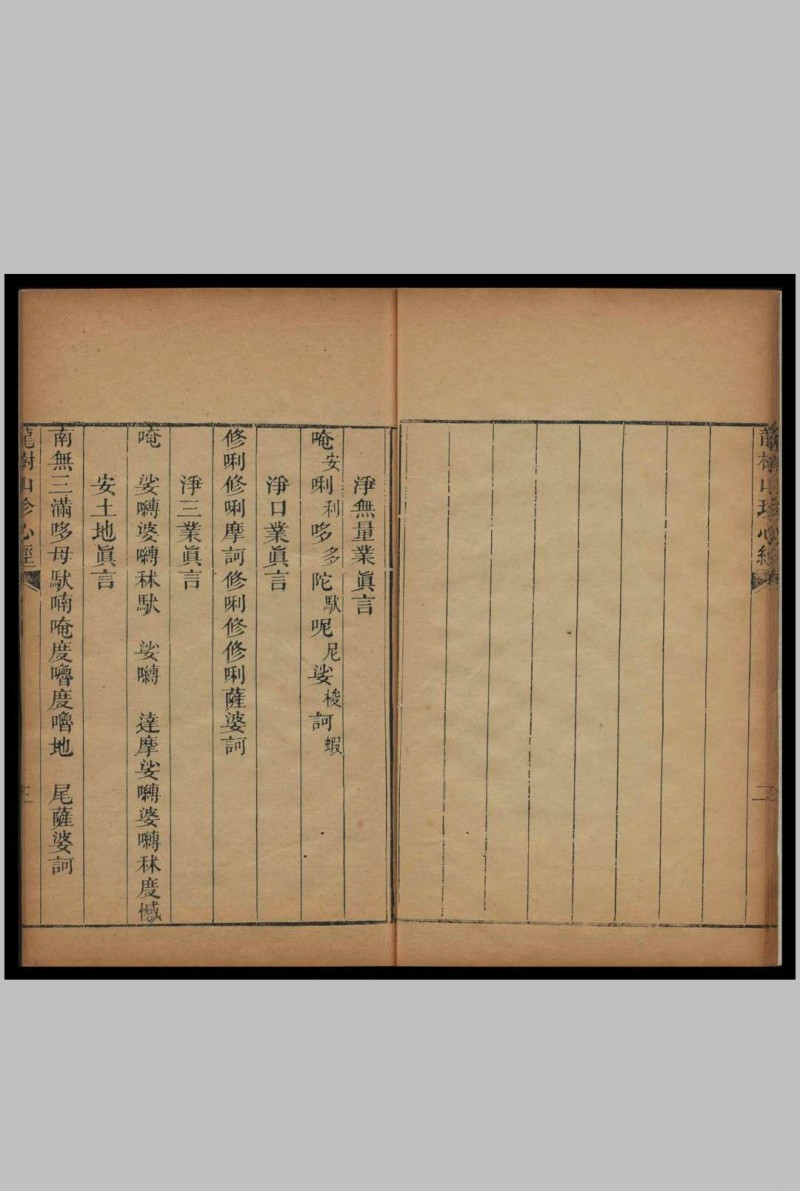 龍樹山珍心經
二
淨無量業眞言
唵安唎利哆多陀馱呢尼娑梭訶蝦
淨口業眞言
修唎修唎摩訶修唎修修唎薩婆訶
淨三業眞言
唵 娑嚩婆嚩秫馱 娑嚩 達摩娑嚩婆嚩秫度憾
安土地眞言
南無三滿哆母馱喃唵度嚕度嚕地 尾薩婆訶
龍樹山珍心經
三